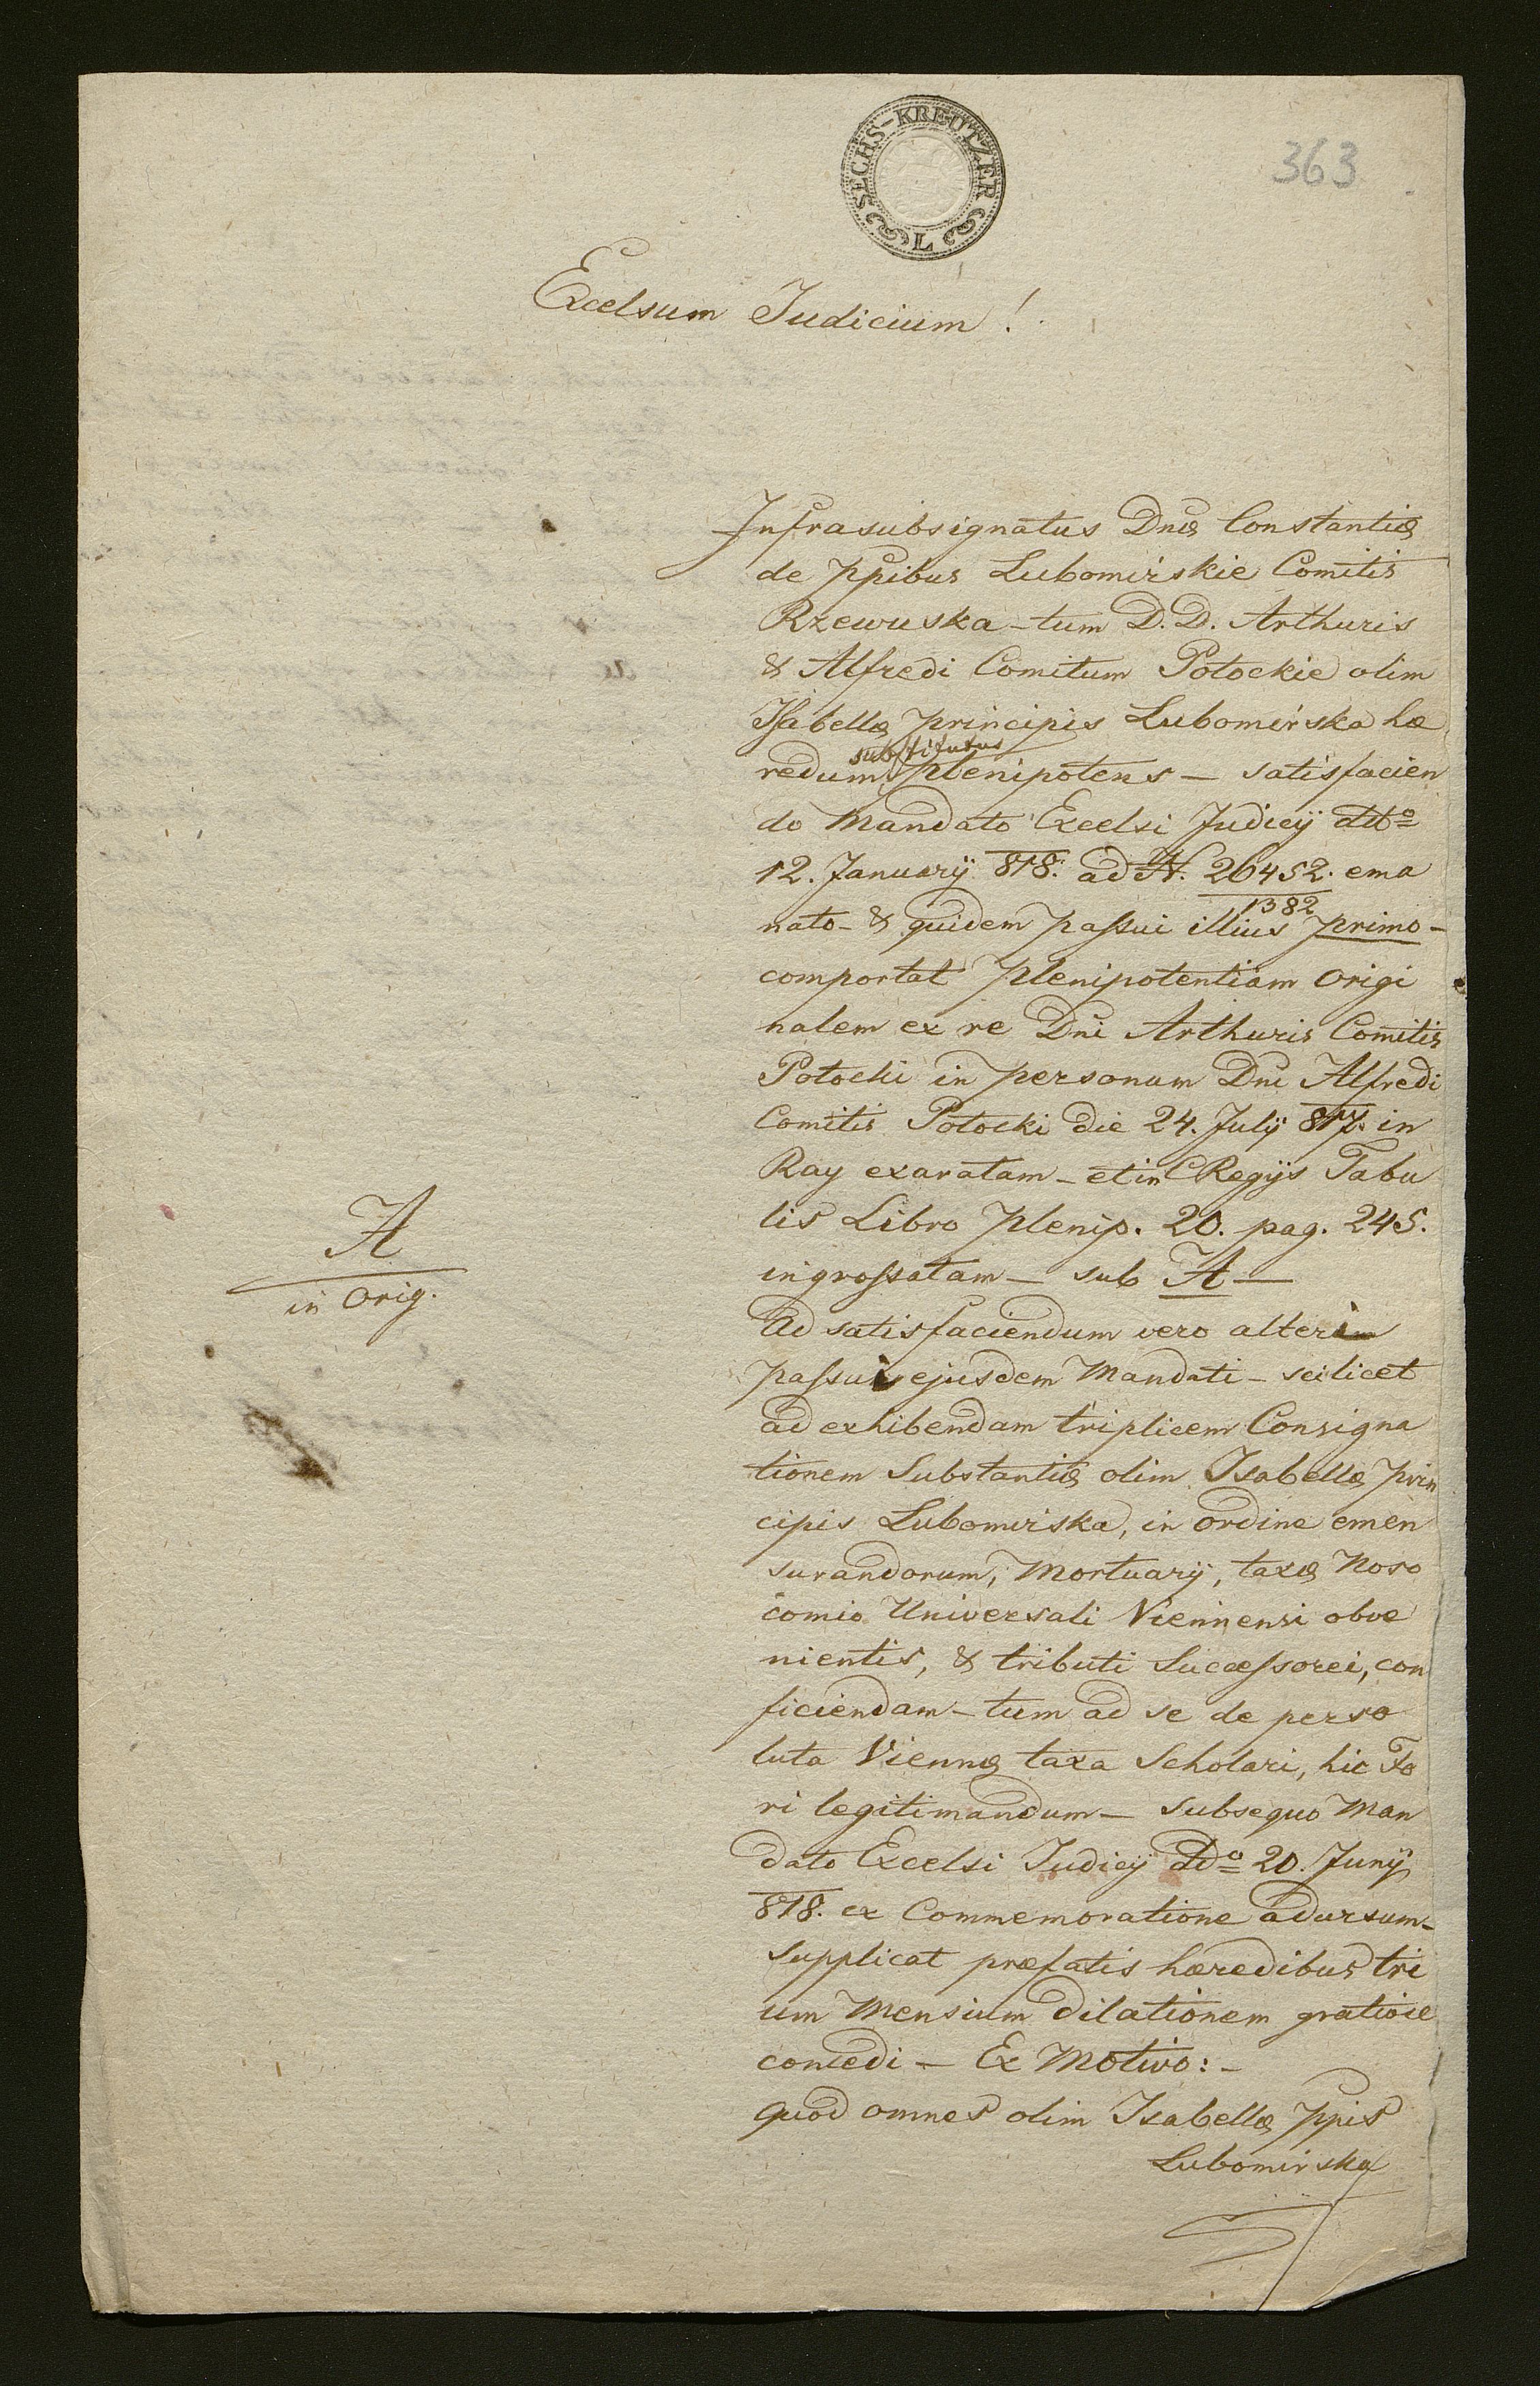 SECHS-KREUTZER
L
363
Excelsum Judicium!
Infrasubsignatus Dnæ Constantiæ
de Ppibus Lubomirskie Comitis
Rzewuska – tum D.D. Arthuris
& Alfredi Comitum Potockie olim
Isabellæ principis Lubomirska hæ
substitutus
redum plenipotens – satisfacien
do Mandato Excelsi Judicÿ ddto
12. Januarÿ 818. ad N. 26452. ema
1382
nato – & quidem passui illius primo –
comportat Plenipotentiam origi
nalem ex re Dni Arthuris Comitis
Potocki in personam Dni Alfredi
Comitis Potocki die 24. Julÿ 817. in
Ray exaratam – et in C Regÿs Tabu
lis Libro Plenip. 20. pag. 245.
ingrossatam – sub A –
A
in Orig.
Ad satisfaciendum vero alteri
passui ejusdem Mandati – scilicet
ad exhibendam triplicem Consigna
tionem Substantiæ olim Isabellæ prin
cipis Lubomirska, in ordine emen
surandorum, Mortuarÿ, taxæ Noso
comio Universali Viennensi obve
nientis, & tributi Successorei, con
ficiendam – tum ad se de perso
luta Viennæ taxa Scholari, hic Fo
ri legitimandum – subsequo Man
dato Excelsi Judicÿ Ddo 20. Junÿ
818. ex Commemoratione adursum –
Supplicat præfatis hæredibus tri
um Mensium dilationem gratiose
concedi – Ex Motivo: –
Quod omnes olim Isabellæ Ppis
Lubomirska